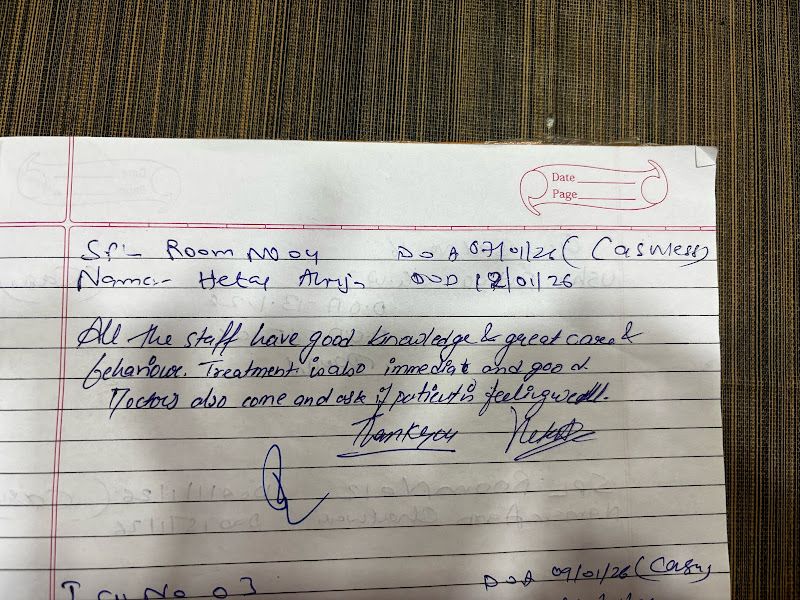 Date
Page
SPL Room No 04 DOA 07/01/26 (Casmess)
Name:- Hetal DOD 12/01/26
All the staff have good knowledge & great care &
behaviour. Treatment is also immediat and good.
Doctors also come and ask if patient is feeling well.
Thankyou
ICU No 03 DOA 09/01/26 (Casm